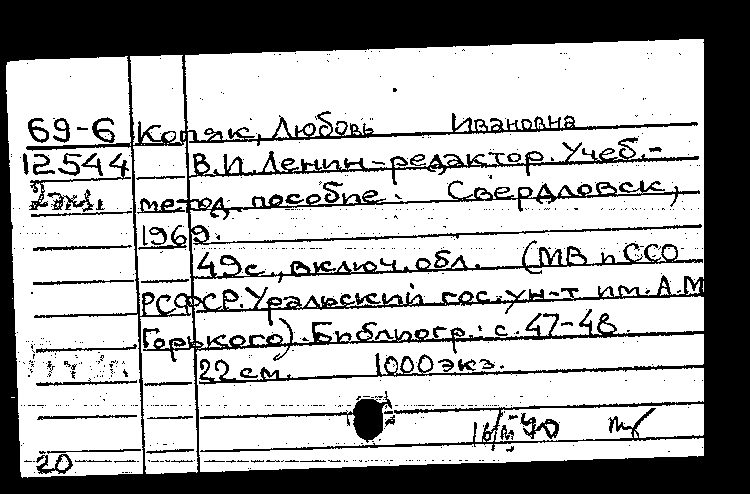 69-6 Копяк, Любовь Ивановна
12544 В.И. Ленин-редактор. Учеб.-
2экз. метод. пособие. Свердловск,
1969.
49с., включ. обл. (МВ и ССО
РСФСР. Уральский гос. ун-т им. А.М
Горького). Библиогр.: с. 47-48.
22 см. 1000 экз.
20